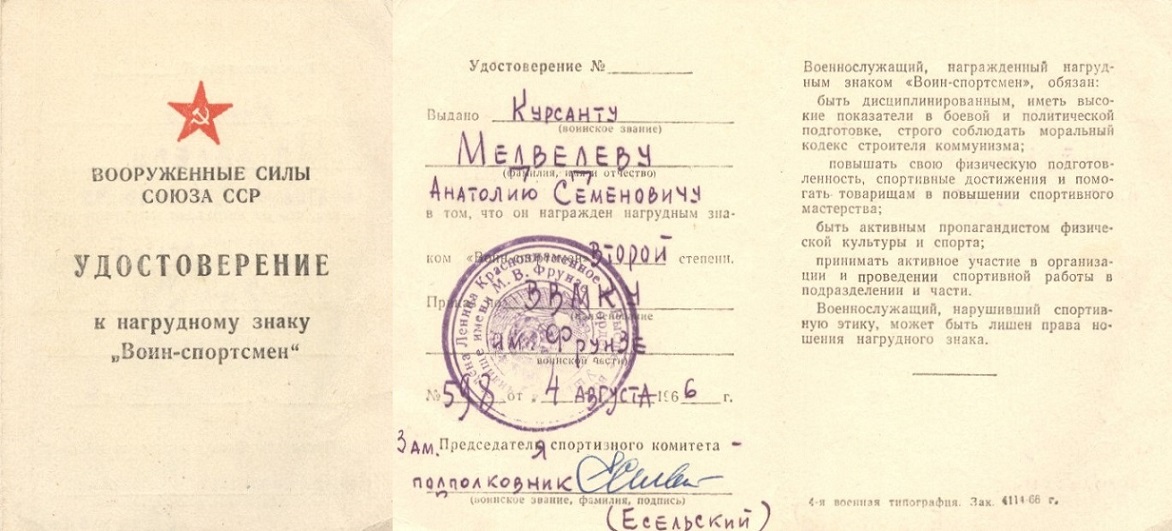 ВООРУЖЕННЫЕ СИЛЫ
СОЮЗА ССР
УДОСТОВЕРЕНИЕ
к нагрудному знаку
„Воин-спортсмен“
Удостоверение №
Выдано Курсанту
(воинское звание)
Медведеву
(фамилия, имя и отчество)
Анатолию Семёновичу
в том, что он награжден нагрудным зна-
ком «Воин-спортсмен» второй степени.
Приказ по ВВМКУ
(наименование
им. Фрунзе
воинской части)
№ 598 от 4 августа 1966 г.
Зам. Председателя спортивного комитета -
подполковник
(воинское звание, фамилия, подпись)
(Есельский)
Военнослужащий, награжденный нагруд-
ным знаком «Воин-спортсмен», обязан:
быть дисциплинированным, иметь высо-
кие показатели в боевой и политической
подготовке, строго соблюдать моральный
кодекс строителя коммунизма;
повышать свою физическую подготов-
ленность, спортивные достижения и помо-
гать товарищам в повышении спортивного
мастерства;
быть активным пропагандистом физиче-
ской культуры и спорта;
принимать активное участие в организа-
ции и проведении спортивной работы в
подразделении и части.
Военнослужащий, нарушивший спортив-
ную этику, может быть лишен права но-
шения нагрудного знака.
4-я военная типография. Зак. 4114-66 г.